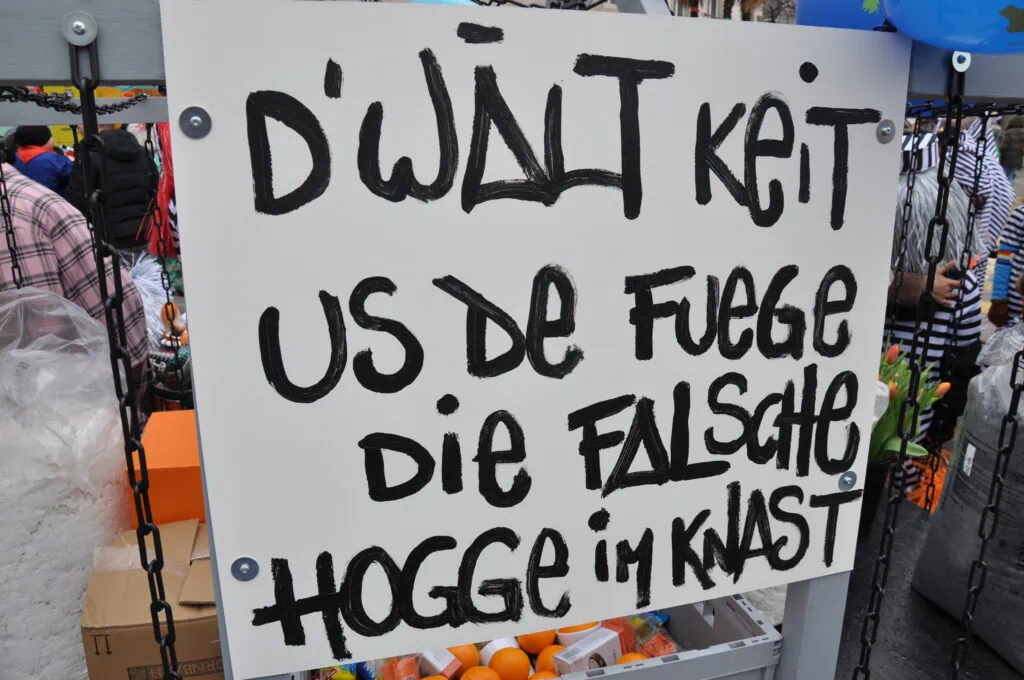 D'WÄLT KEIT
US DE FUEGE
DIE FALSCHE
HOGGE IM KNAST